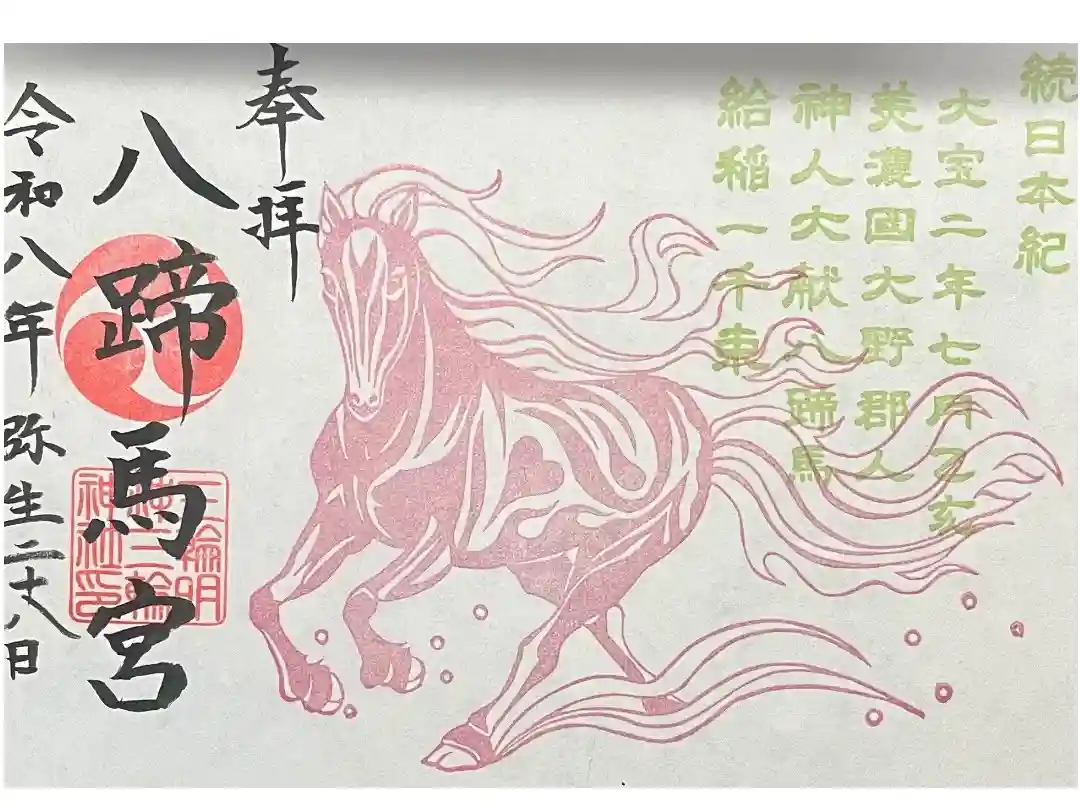 続日本紀
大宝二年七月乙亥
美濃國大野郡人
神人大献八蹄馬
給稲一千束
奉拝
八蹄馬宮
三輪明
神社印
令和八年弥生二十八日